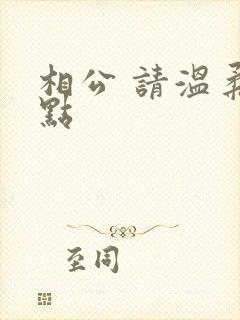 相公 請溫柔
點
至同